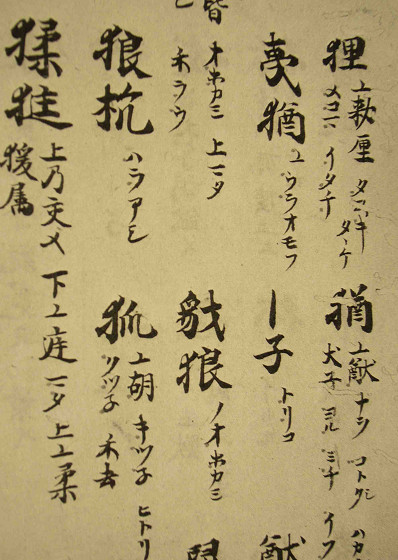 狸 上款厘 タヌキ タヽケ
メコマ イタチ
猶 上猷 ナヲ コトクシ ハカ
犬子 ヨル ミチ イフ
夷猶 ユウラオモフ
丨子 トリコ
猷
皆 オホカミ 上一タ
禾ラウ
狼 ノオホカミ
狼抗 ハラアシ
狐 上胡 キツ子 ヒトリ
クツ子 禾去
猱 上乃交メ 下上庭 一タ 上上柔
猨属